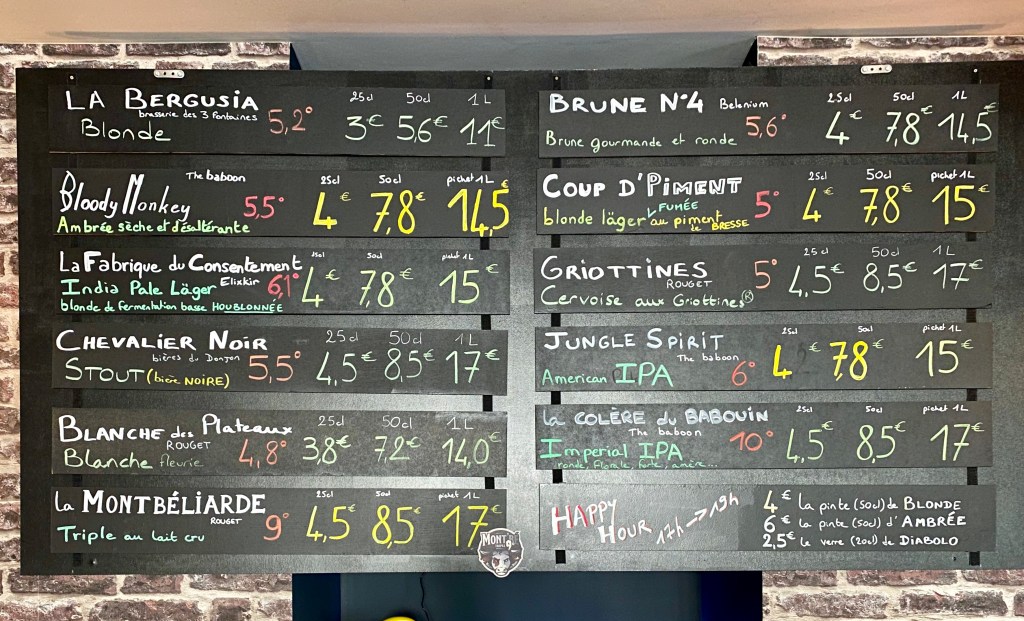 LA BERGUSIA 25cl 50cl 1L
brasserie des 3 Fontaines 5,2°
Blonde 3€ 5,6€ 11€
The baboon 25cl 50cl pichet 1L
Bloody Monkey 5,5° 4€ 7,8€ 14,5€
Ambrée sèche et désaltérante
La Fabrique du Consentement 25cl 50cl pichet 1L
India Pale Läger Elixkir 6,1° 4€ 7,8€ 15€
blonde de fermentation basse HOUBLONNÉE
CHEVALIER NOIR 25cl 50cl 1L
bières du Donjon
STOUT (bière NOIRE) 5,5° 4,5€ 8,5€ 17€
BLANCHE des Plateaux 25cl 50cl 1L
ROUGET
Blanche fleurie 4,8° 3,8€ 7,2€ 14,0€
la MONTBÉLIARDE 25cl 50cl pichet 1L
ROUGET
Triple au lait cru 9° 4,5€ 8,5€ 17€
MONT
BRUNE N°4 Belenium 25cl 50cl 1L
Brune gourmande et ronde 5,6° 4€ 7,8€ 14,5€
COUP D'PIMENT 25cl 50cl pichet 1L
FUMÉE
blonde läger au piment de BRESSE 5° 4€ 7,8€ 15€
GRIOTTINES 25cl 50cl 1L
ROUGET
Cervoise aux Griottines ® 5° 4,5€ 8,5€ 17€
JUNGLE SPIRIT 25cl 50cl pichet 1L
The baboon
American IPA 6° 4€ 7,8€ 15€
la COLÈRE du BABOUIN 25cl 50cl pichet 1L
The baboon
Imperial IPA 10° 4,5€ 8,5€ 17€
ronde, florale, forte, amère...
HAPPY HOUR 17h -> 19h
4€ la pinte (50cl) de BLONDE
6€ la pinte (50cl) d'AMBRÉE
2,5€ le verre (20cl) de DIABOLO